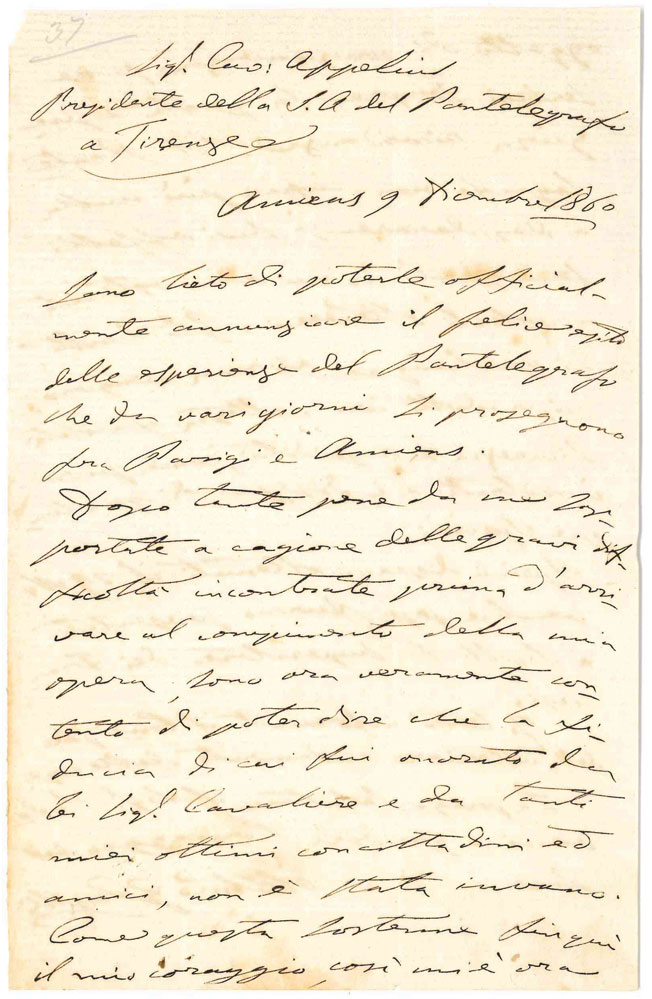 37
Sigr. Cav: Appelius
Presidente della S. A del Pantelegrafo
a Firenze
Amiens 9 Dicembre 1860
Sono lieto di poterle official-
mente annunziare il felice esito
delle esperienze del Pantelegrafo
che da vari giorni si proseguono
fra Parigi e Amiens.
Dopo tante pene da me sop-
portate a cagione delle gravi dif-
ficoltà incontrate prima d'arri-
vare al compimento della mia
opera, sono ora veramente con-
tento di poter dire che la fi-
ducia di cui fui onorato da
Lei Sigr. Cavaliere e da tanti
miei ottimi concittadini ed
amici, non è stata invano.
Come questa sostenne finquì
il mio coraggio, così mi è ora